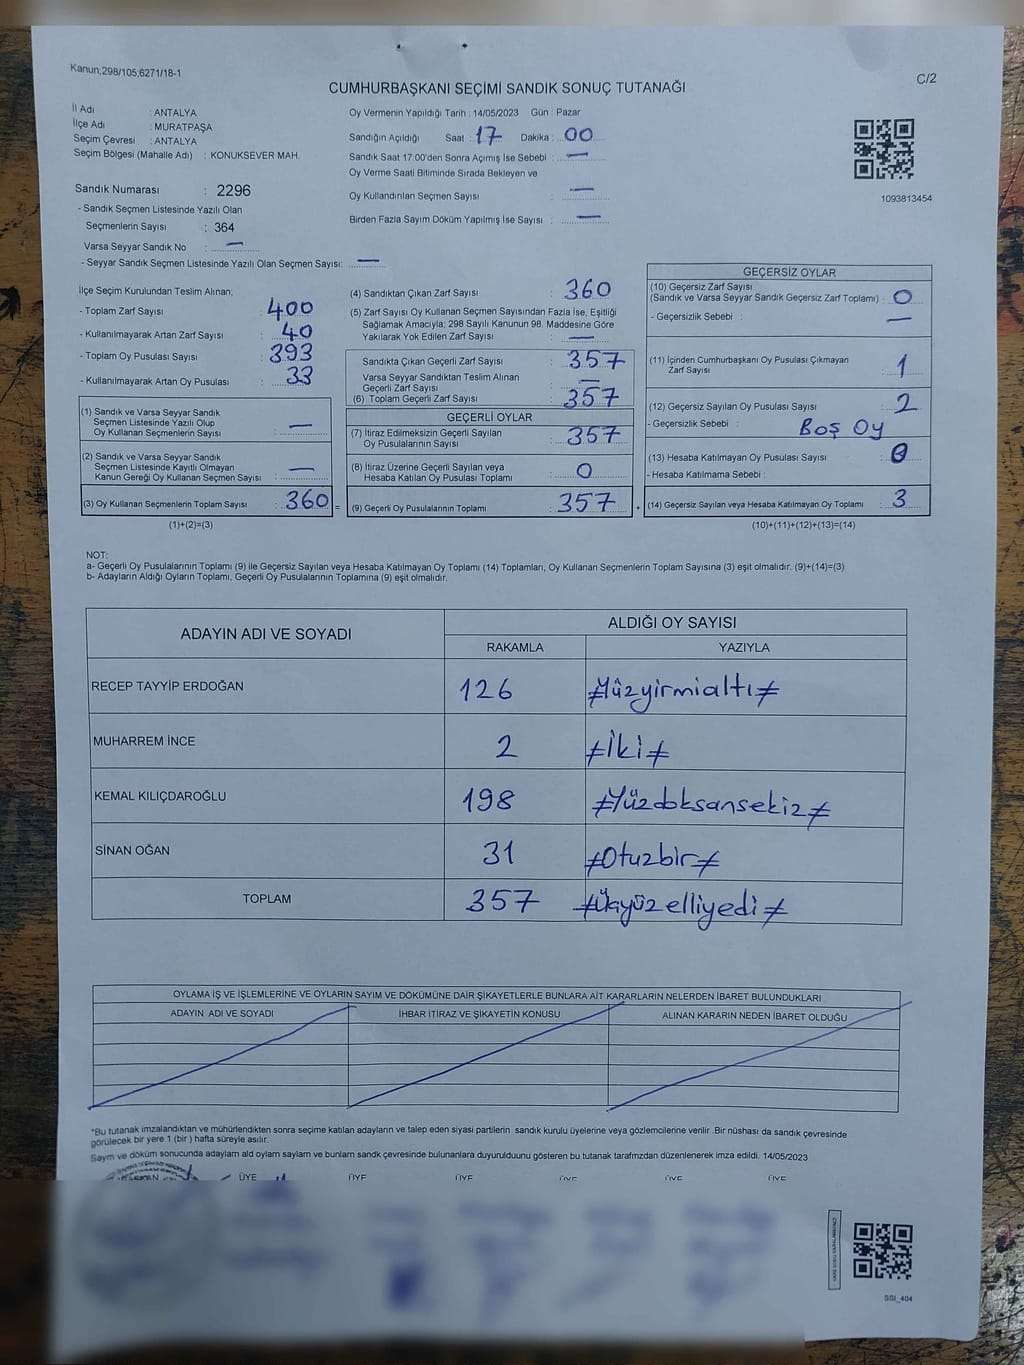 Kanun;298/105;6271/18-1
C/2
CUMHURBAŞKANI SEÇİMİ SANDIK SONUÇ TUTANAĞI
İl Adı : ANTALYA
İlçe Adı : MURATPAŞA
Seçim Çevresi : ANTALYA
Seçim Bölgesi (Mahalle Adı) : KONUKSEVER MAH.
Oy Vermenin Yapıldığı Tarih : 14/05/2023 Gün : Pazar
Sandığın Açıldığı Saat : 17 Dakika : 00
Sandık Saat 17:00'den Sonra Açımış İse Sebebi : —
Oy Verme Saati Bitiminde Sırada Bekleyen ve
Oy Kullandırılan Seçmen Sayısı : —
Birden Fazla Sayım Döküm Yapılmış İse Sayısı : —
1093813454
Sandık Numarası : 2296
- Sandık Seçmen Listesinde Yazılı Olan
Seçmenlerin Sayısı : 364
Varsa Seyyar Sandık No : —
- Seyyar Sandık Seçmen Listesinde Yazılı Olan Seçmen Sayısı: —
İlçe Seçim Kurulundan Teslim Alınan;
- Toplam Zarf Sayısı : 400
- Kullanılmayarak Artan Zarf Sayısı : 40
- Toplam Oy Pusulası Sayısı : 393
- Kullanılmayarak Artan Oy Pusulası : 33
(1) Sandık ve Varsa Seyyar Sandık
Seçmen Listesinde Yazılı Olup
Oy Kullanan Seçmenlerin Sayısı : —
(2) Sandık ve Varsa Seyyar Sandık
Seçmen Listesinde Kayıtlı Olmayan
Kanun Gereği Oy Kullanan Seçmen Sayısı : —
(3) Oy Kullanan Seçmenlerin Toplam Sayısı : 360 =
(1)+(2)=(3)
(4) Sandıktan Çıkan Zarf Sayısı : 360
(5) Zarf Sayısı Oy Kullanan Seçmen Sayısından Fazla İse, Eşitliği
Sağlamak Amacıyla; 298 Sayılı Kanunun 98. Maddesine Göre
Yakılarak Yok Edilen Zarf Sayısı : —
Sandıkta Çıkan Geçerli Zarf Sayısı : 357
Varsa Seyyar Sandıktan Teslim Alınan
Geçerli Zarf Sayısı : —
(6) Toplam Geçerli Zarf Sayısı : 357
GEÇERLİ OYLAR
(7) İtiraz Edilmeksizin Geçerli Sayılan
Oy Pusulalarının Sayısı : 357
(8) İtiraz Üzerine Geçerli Sayılan veya
Hesaba Katılan Oy Pusulası Toplamı : 0
(9) Geçerli Oy Pusulalarının Toplamı : 357 +
GEÇERSİZ OYLAR
(10) Geçersiz Zarf Sayısı
(Sandık ve Varsa Seyyar Sandık Geçersiz Zarf Toplamı) : 0
- Geçersizlik Sebebi : —
(11) İçinden Cumhurbaşkanı Oy Pusulası Çıkmayan
Zarf Sayısı : 1
(12) Geçersiz Sayılan Oy Pusulası Sayısı : 2
- Geçersizlik Sebebi : Boş Oy
(13) Hesaba Katılmayan Oy Pusulası Sayısı : 0
- Hesaba Katılmama Sebebi :
(14) Geçersiz Sayılan veya Hesaba Katılmayan Oy Toplamı : 3
(10)+(11)+(12)+(13)=(14)
NOT:
a- Geçerli Oy Pusulalarının Toplamı (9) ile Geçersiz Sayılan veya Hesaba Katılmayan Oy Toplamı (14) Toplamları, Oy Kullanan Seçmenlerin Toplam Sayısına (3) eşit olmalıdır. (9)+(14)=(3)
b- Adayların Aldığı Oyların Toplamı, Geçerli Oy Pusulalarının Toplamına (9) eşit olmalıdır.
ADAYIN ADI VE SOYADI
ALDIĞI OY SAYISI
RAKAMLA YAZIYLA
RECEP TAYYİP ERDOĞAN 126 ≠Yüzyirmialtı≠
MUHARREM İNCE 2 ≠İki≠
KEMAL KILIÇDAROĞLU 198 ≠Yüzdoksansekiz≠
SİNAN OĞAN 31 ≠Otuzbir≠
TOPLAM 357 ≠Üçyüzelliyedi≠
OYLAMA İŞ VE İŞLEMLERİNE VE OYLARIN SAYIM VE DÖKÜMÜNE DAİR ŞİKAYETLERLE BUNLARA AİT KARARLARIN NELERDEN İBARET BULUNDUKLARI
ADAYIN ADI VE SOYADI İHBAR İTİRAZ VE ŞİKAYETİN KONUSU ALINAN KARARIN NEDEN İBARET OLDUĞU
*Bu tutanak imzalandıktan ve mühürlendikten sonra seçime katılan adayların ve talep eden siyasi partilerin sandık kurulu üyelerine veya gözlemcilerine verilir .Bir nüshası da sandık çevresinde
görülecek bir yere 1 (bir ) hafta süreyle asılır.
Sayım ve döküm sonucunda adayların ald oyların sayları ve bunların sandk çevresinde bulunanlara duyurulduunu gösteren bu tutanak tarafmzdan düzenlenerek imza edildi. 14/05/2023
ÜYE ÜYE ÜYE ÜYE ÜYE ÜYE
SSI_404